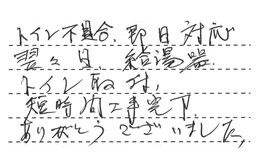 トイレ不具合、即日対応
翌々日、給湯器、
トイレ取付、
短時間工事完了
ありがとうございました。